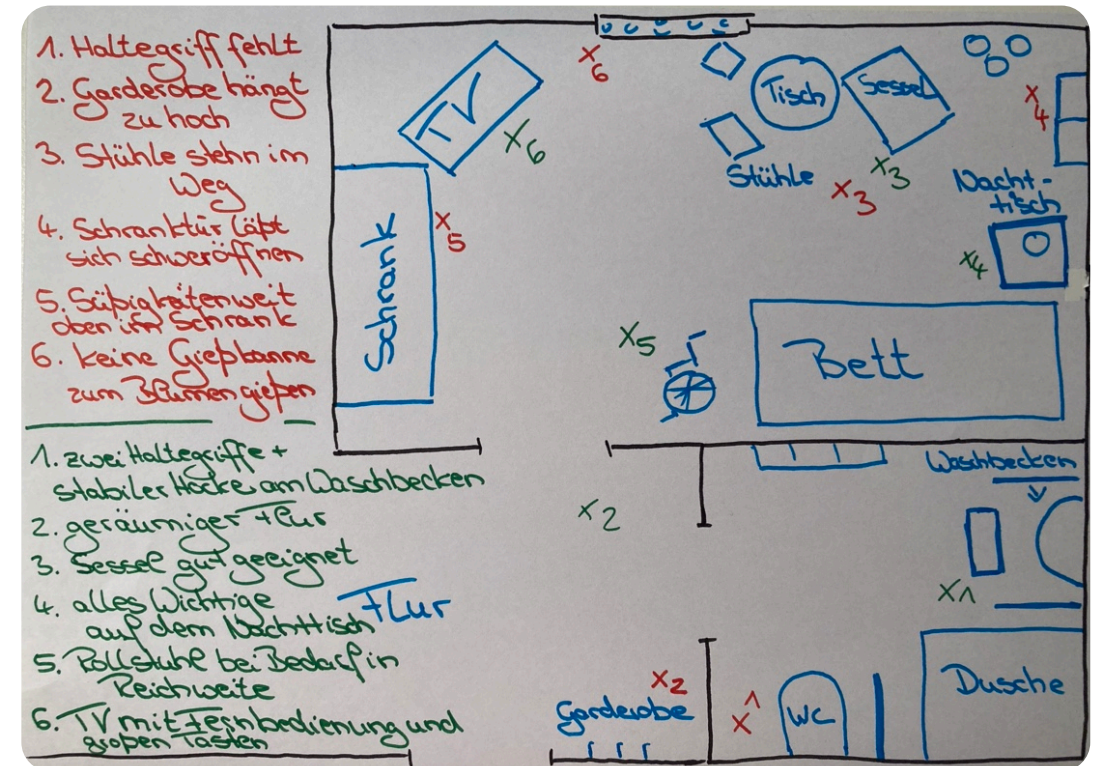 1. Haltegriff fehlt
2. Garderobe hängt
zu hoch
3. Stühle stehn im
Weg
4. Schranktür läßt
sich schwer öffnen
5. Süßigkeiten weit
oben im Schrank
6. keine Gießkanne
zum Blumen gießen
1. zwei Haltegriffe +
stabiler Hocker am Waschbecken
2. geräumiger Flur
3. Sessel gut geeignet
4. alles Wichtige
auf dem Nachttisch
5. Rollstuhl bei Bedarf in
Reichweite
6. TV mit Fernbedienung und
großen Tasten
TV
x6
x6
Tisch
Sessel
Stühle
x3
x3
x4
Nacht-
tisch
x4
Schrank
x5
x5
Bett
x2
Waschbecken
x1
Flur
x2
Garderobe
x1
WC
Dusche